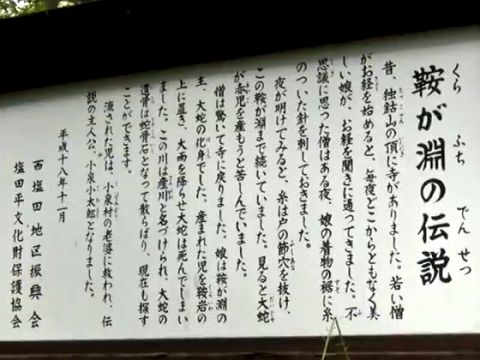 鞍が淵の伝説
くら ふち でんせつ
昔、独鈷山の頂に寺がありました。若い僧
がお経を始めると、毎夜どこからともなく美
しい娘が、お経を聞きに通ってきました。不
思議に思った僧はある夜、娘の着物の裾に糸
のついた針を刺しておきました。
夜が明けてみると、糸は戸の節穴を抜け、
この鞍が淵まで続いていました。見ると大蛇
が赤児を産もうと苦しんでいました。
僧は驚いて寺に戻りました。娘は鞍が淵の
主、大蛇の化身でした。産まれた児を鞍岩の
上に置き、大雨を降らせ大蛇は死んでしまい
ました。この川は産川と名づけられ、大蛇の
遺骨は蛇骨石となって散らばり、現在も探す
ことができます。
流された児は、小泉村の老婆に救われ、伝
説の主人公、小泉小太郎となりました。
平成十八年十一月
西塩田地区振興会
塩田平文化財保護協会